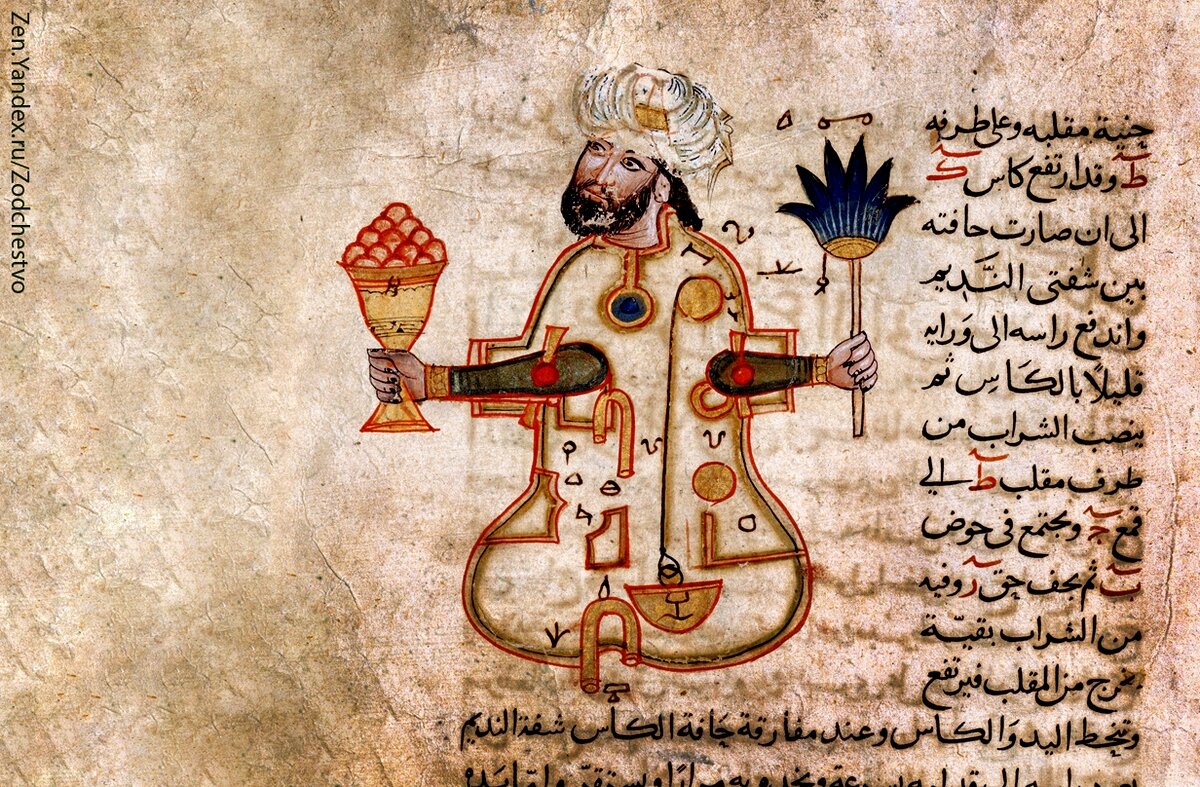 Zen.Yandex.ru/Zodchestvo
جنبة مقلبه وعلى طرفه
ط وقد ارتفع كاس ك
الى ان صارت حافته
بين شفتى النَّديم
واندفع راسه الى وَرايه
قليلًا بالكَاسِ ثم
ينصب الشراب من
طرف مقلب ط الي
قمع ج ويجتمع فى حوض
ثم يجف حق ر وفيه
من الشراب بقيّة
يخرج من المقلب فيرتفع
وتنحط اليد وَالكاس وعند مفارقة حَافة الكاس شفة النديم